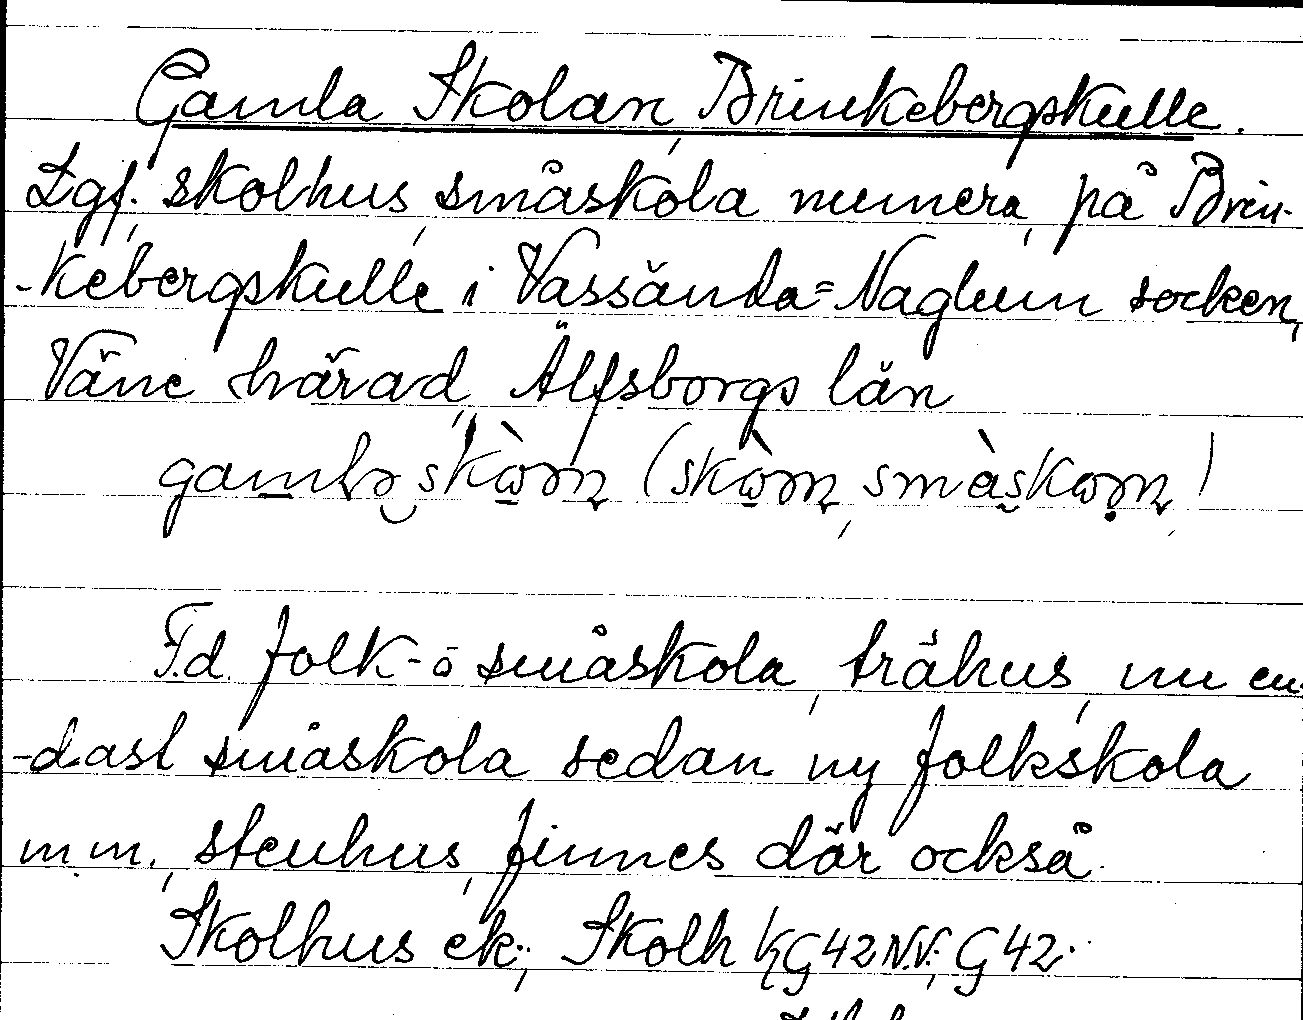 Gamla Skolan, Brinkebergskulle.
Lgf., skolhus, småskola numera, på Brin-
-kebergskulle i Vassända=Naglum socken,
Väne härad, Älfsborgs län
F.d. folk- o småskola, trähus, nu en-
-dast småskola sedan ny folkskola
m.m., stenhus, finnes där också.
Skolhus ek.; Skolh KG42N.V.; G42.